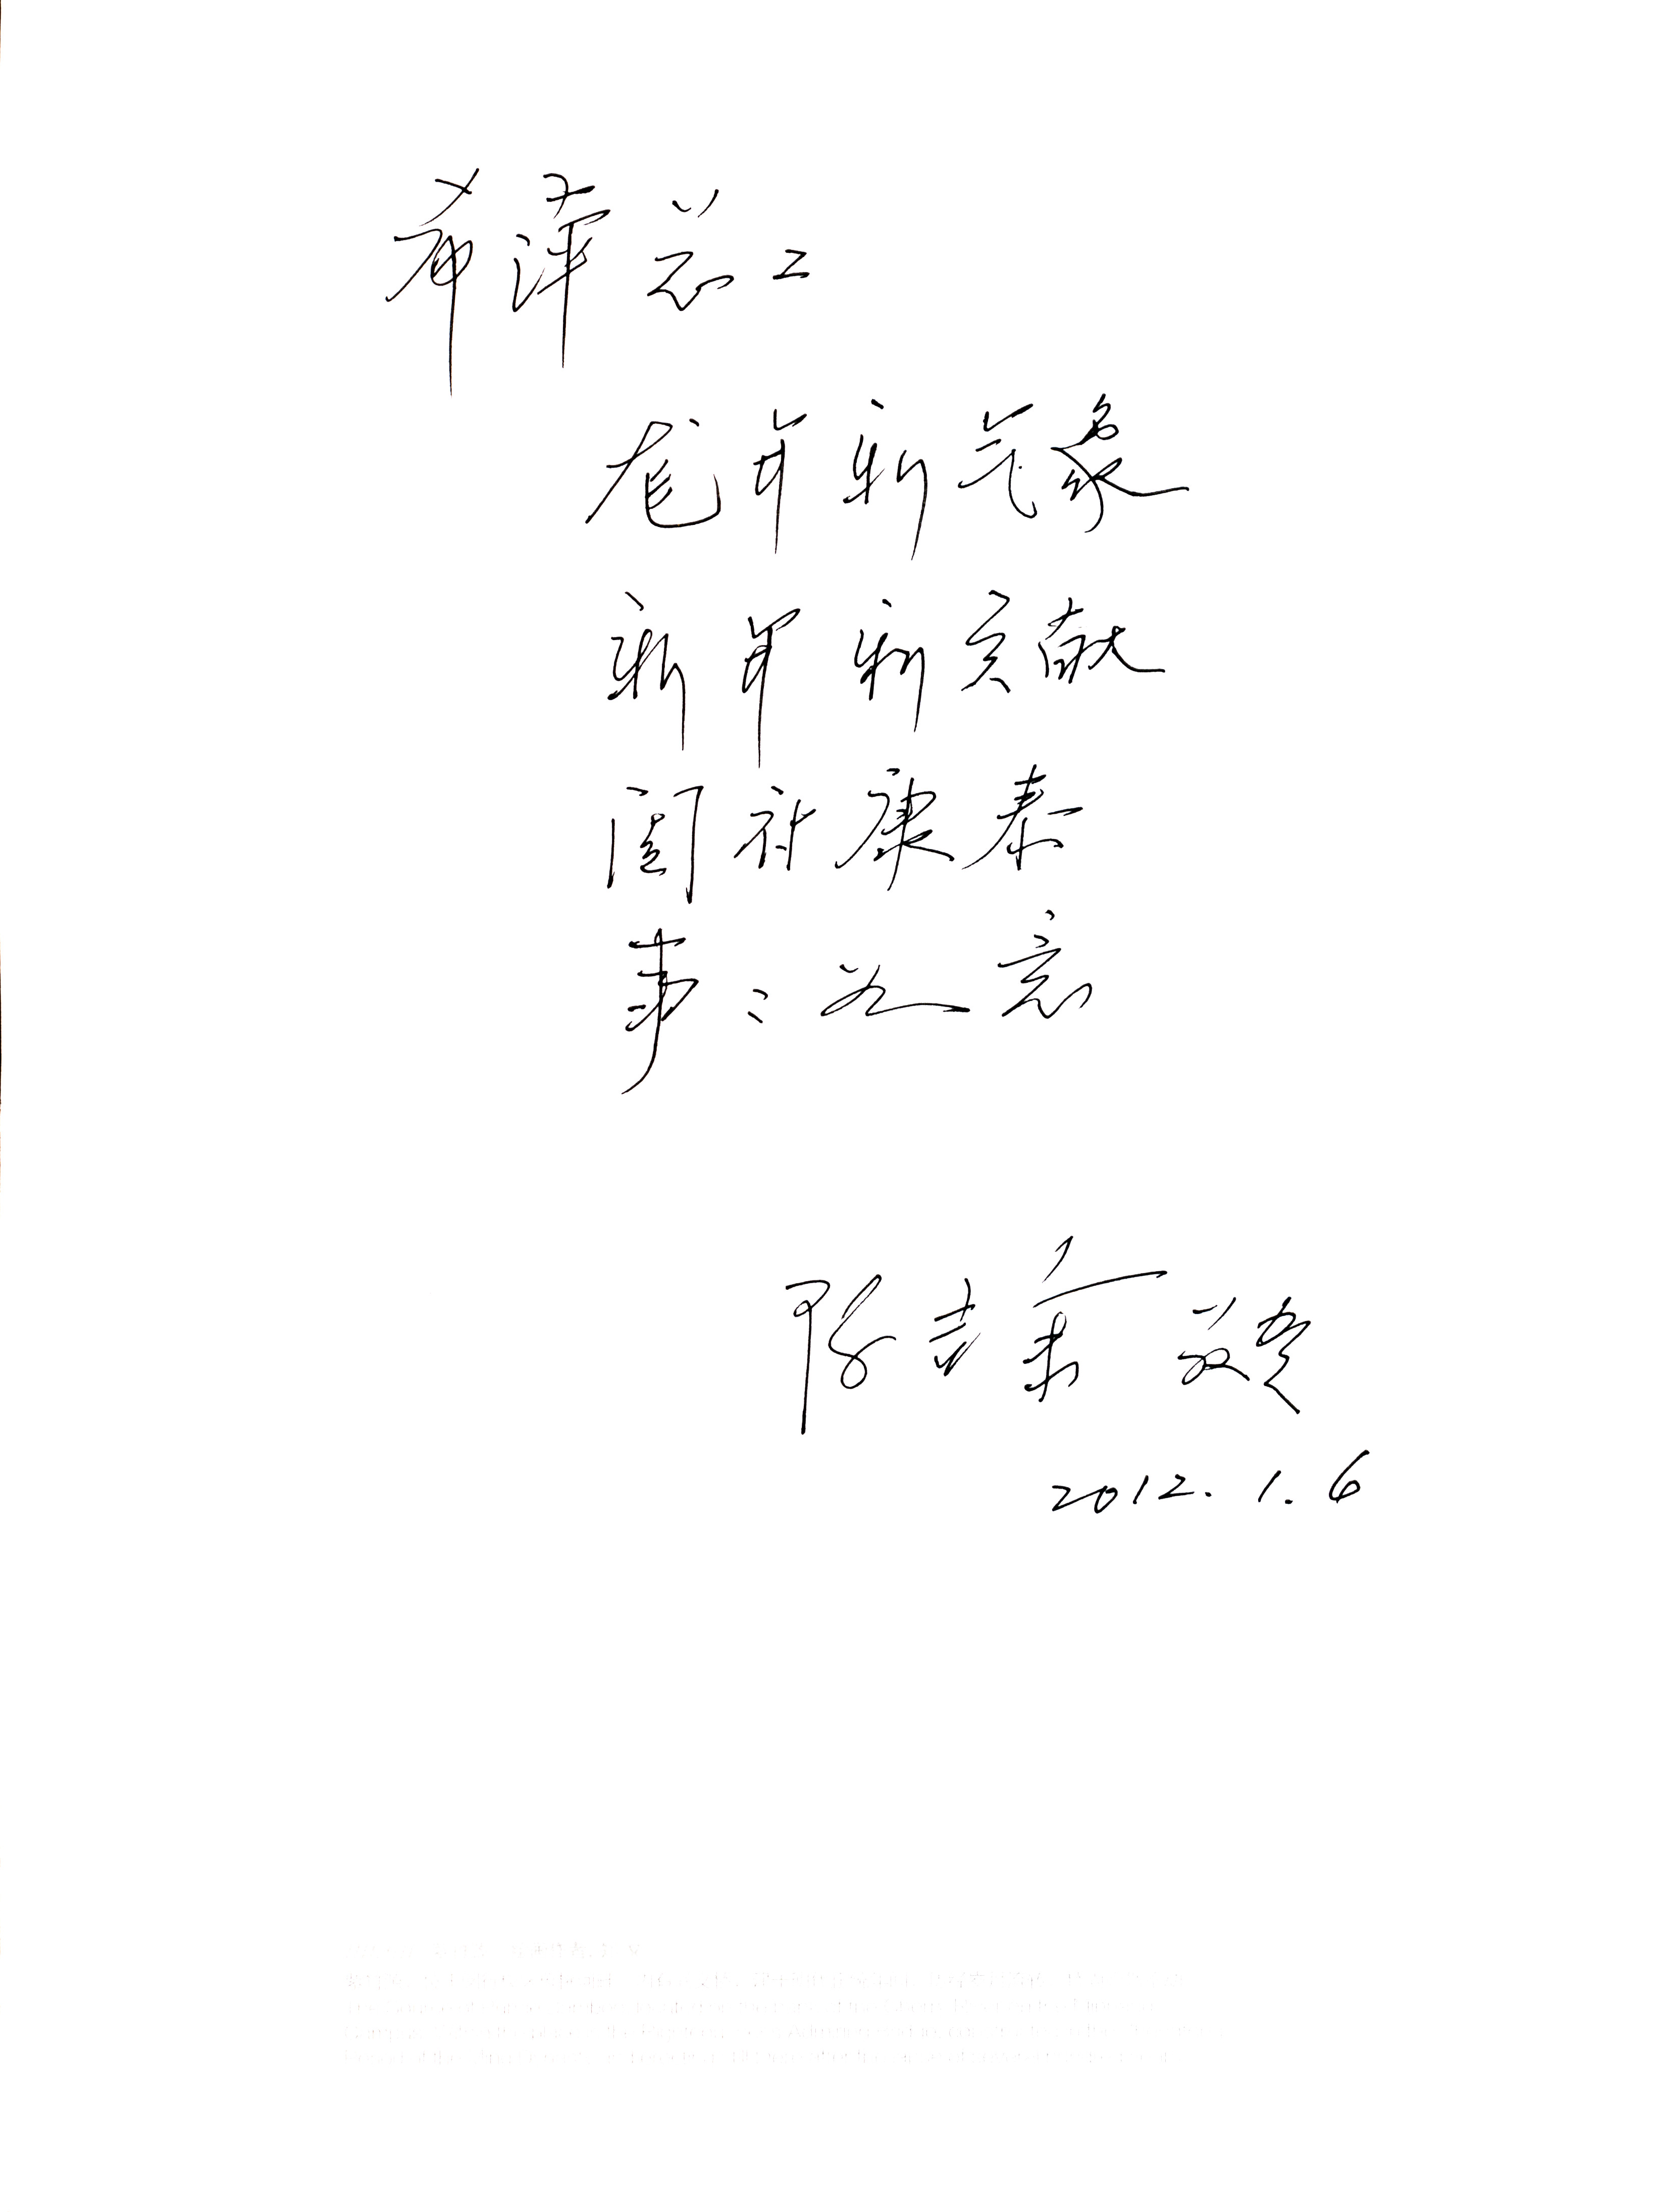 希萍总工
龙年新气象
新年新贡献
阖社康泰
事事如意
陈吉余 敬贺
2012.1.6